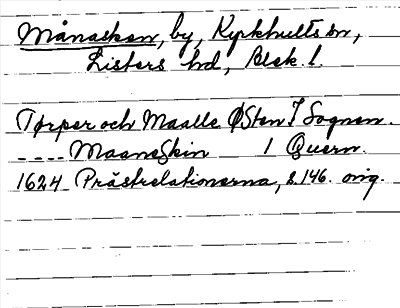 Månaskan, by, Kyrkhults sn,
Listers hd, Blek. l.
Tørper och Maalle ØSten I Sognen.
---- MaaneSkin 1 Quern.
1624 Prästrelationerna, s. 146. orig.